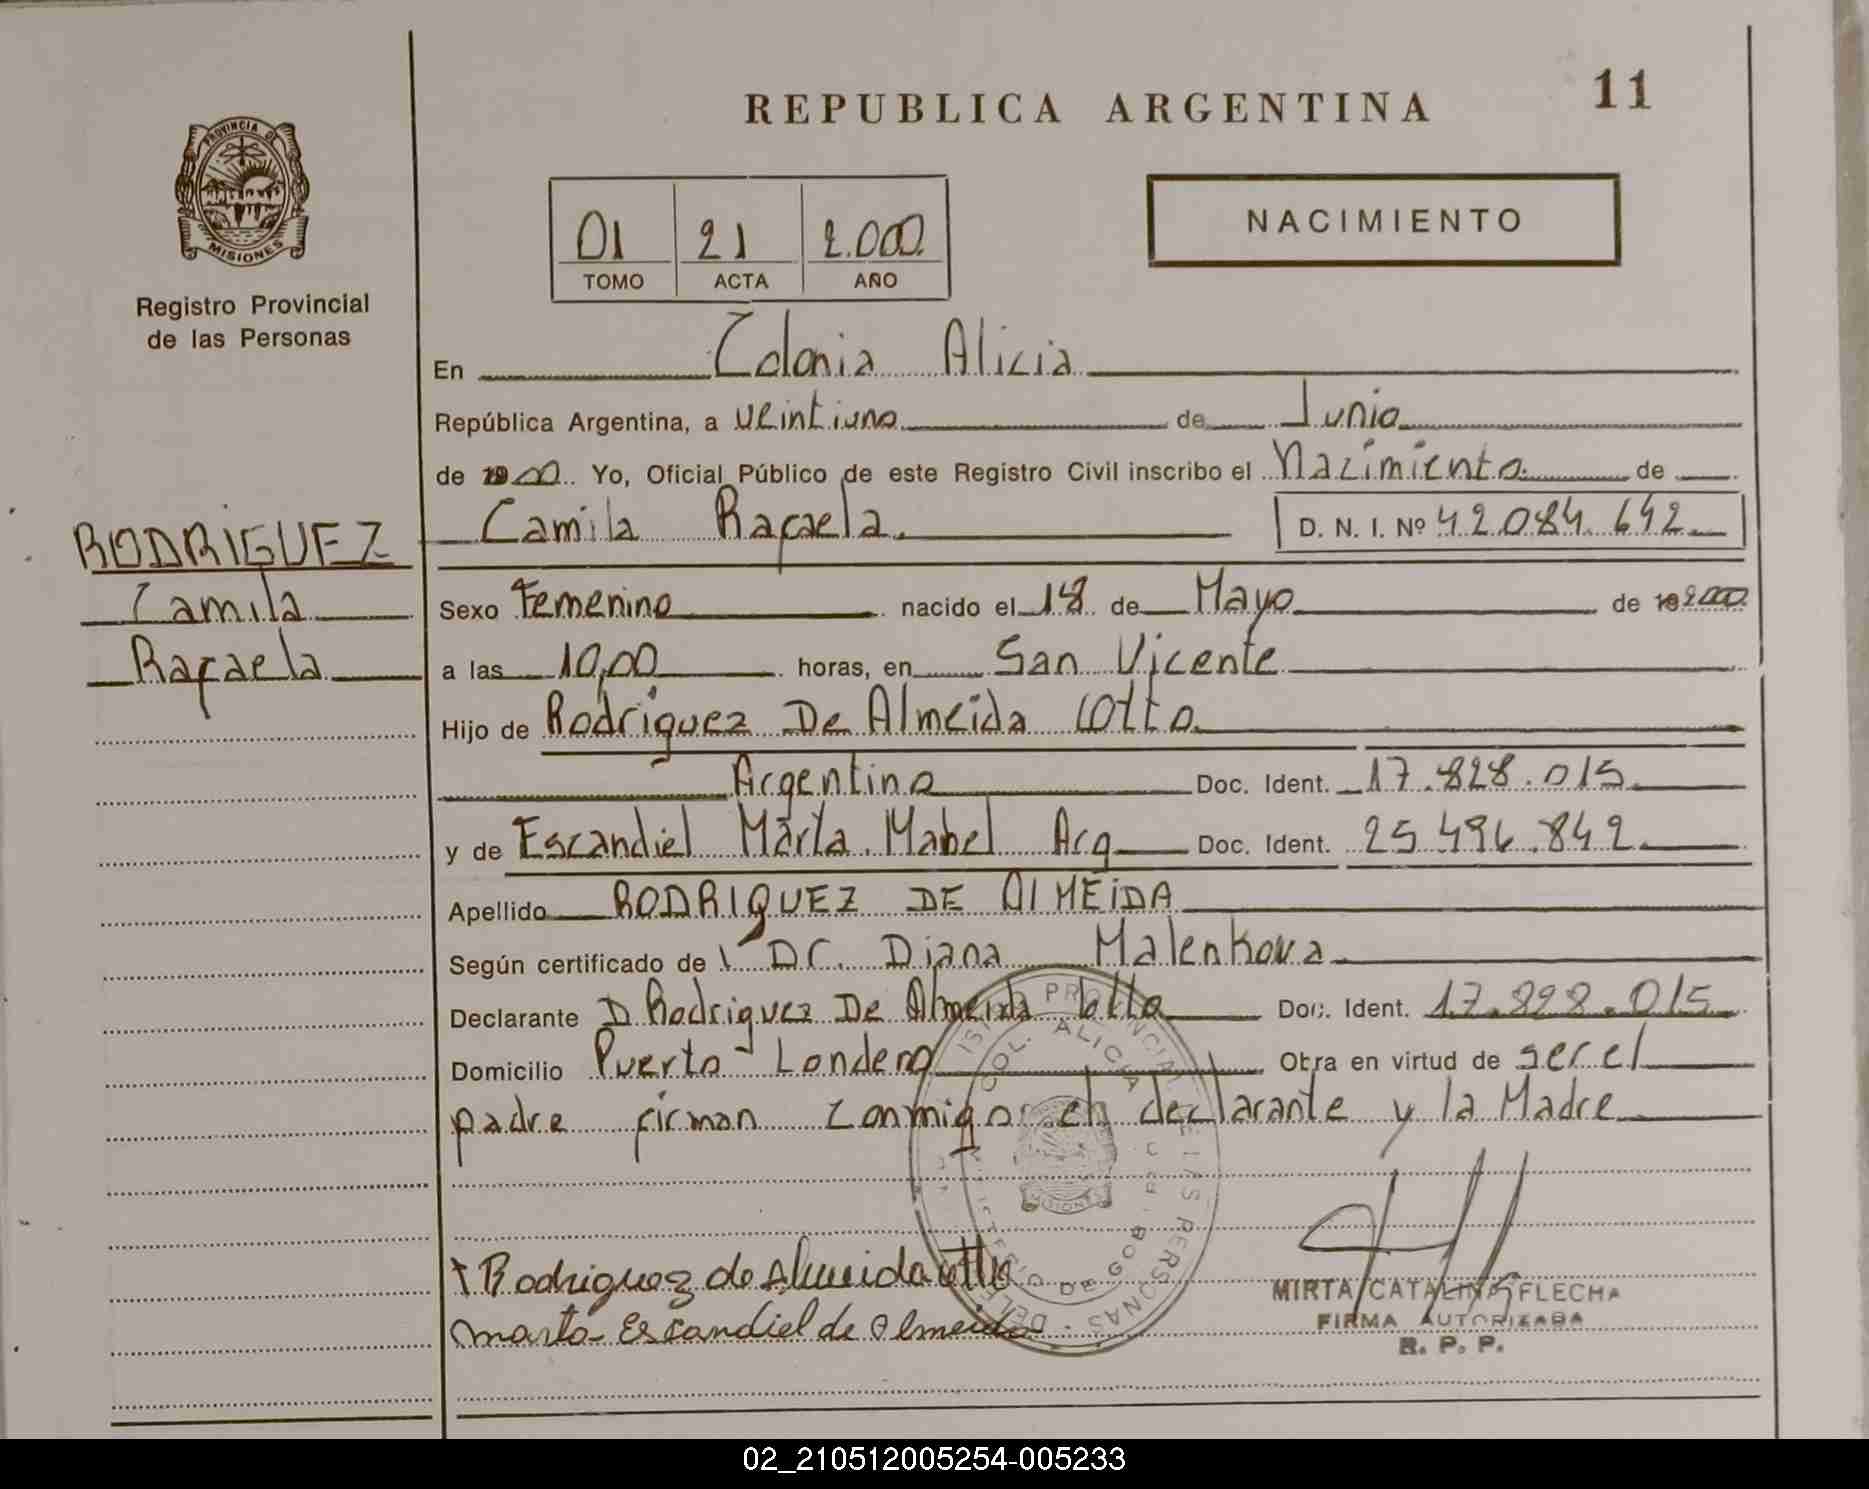 REPUBLICA ARGENTINA
11
PROVINCIA DE
MISIONES
Registro Provincial
de las Personas
01 21 2.000
TOMO ACTA AÑO
NACIMIENTO
En Colonia Alicia
República Argentina, a veintiuno de Junio
de Yo, Oficial Público de este Registro Civil inscribo el Nacimiento de
Camila Rafaela. D. N. I. Nº 42.084.642
RODRIGUEZ
Camila
Rafaela
Sexo Femenino nacido el 18 de Mayo de 2000
a las 10,00 horas, en San Vicente
Hijo de Rodriguez De Almeida Otto
Argentino Doc. Ident. 17.828.015
y de Escandiel Marta Mabel Arg Doc. Ident. 25.496.842
Apellido RODRIQUEZ DE ALMEIDA
Según certificado de Dr. Diana Malenkova
Declarante D Rodriguez De Almeida Otto Doc. Ident. 17.828.015
Domicilio Puerto Londero Obra en virtud de ser el
padre firman conmigo el declarante y la Madre
COL. ALICIA
Rodriguez de Almeida Otto
Marta Escandiel de Almeida
MIRTA CATALINA FLECHA
FIRMA AUTORIZADA
R. P. P.
02_210512005254-005233